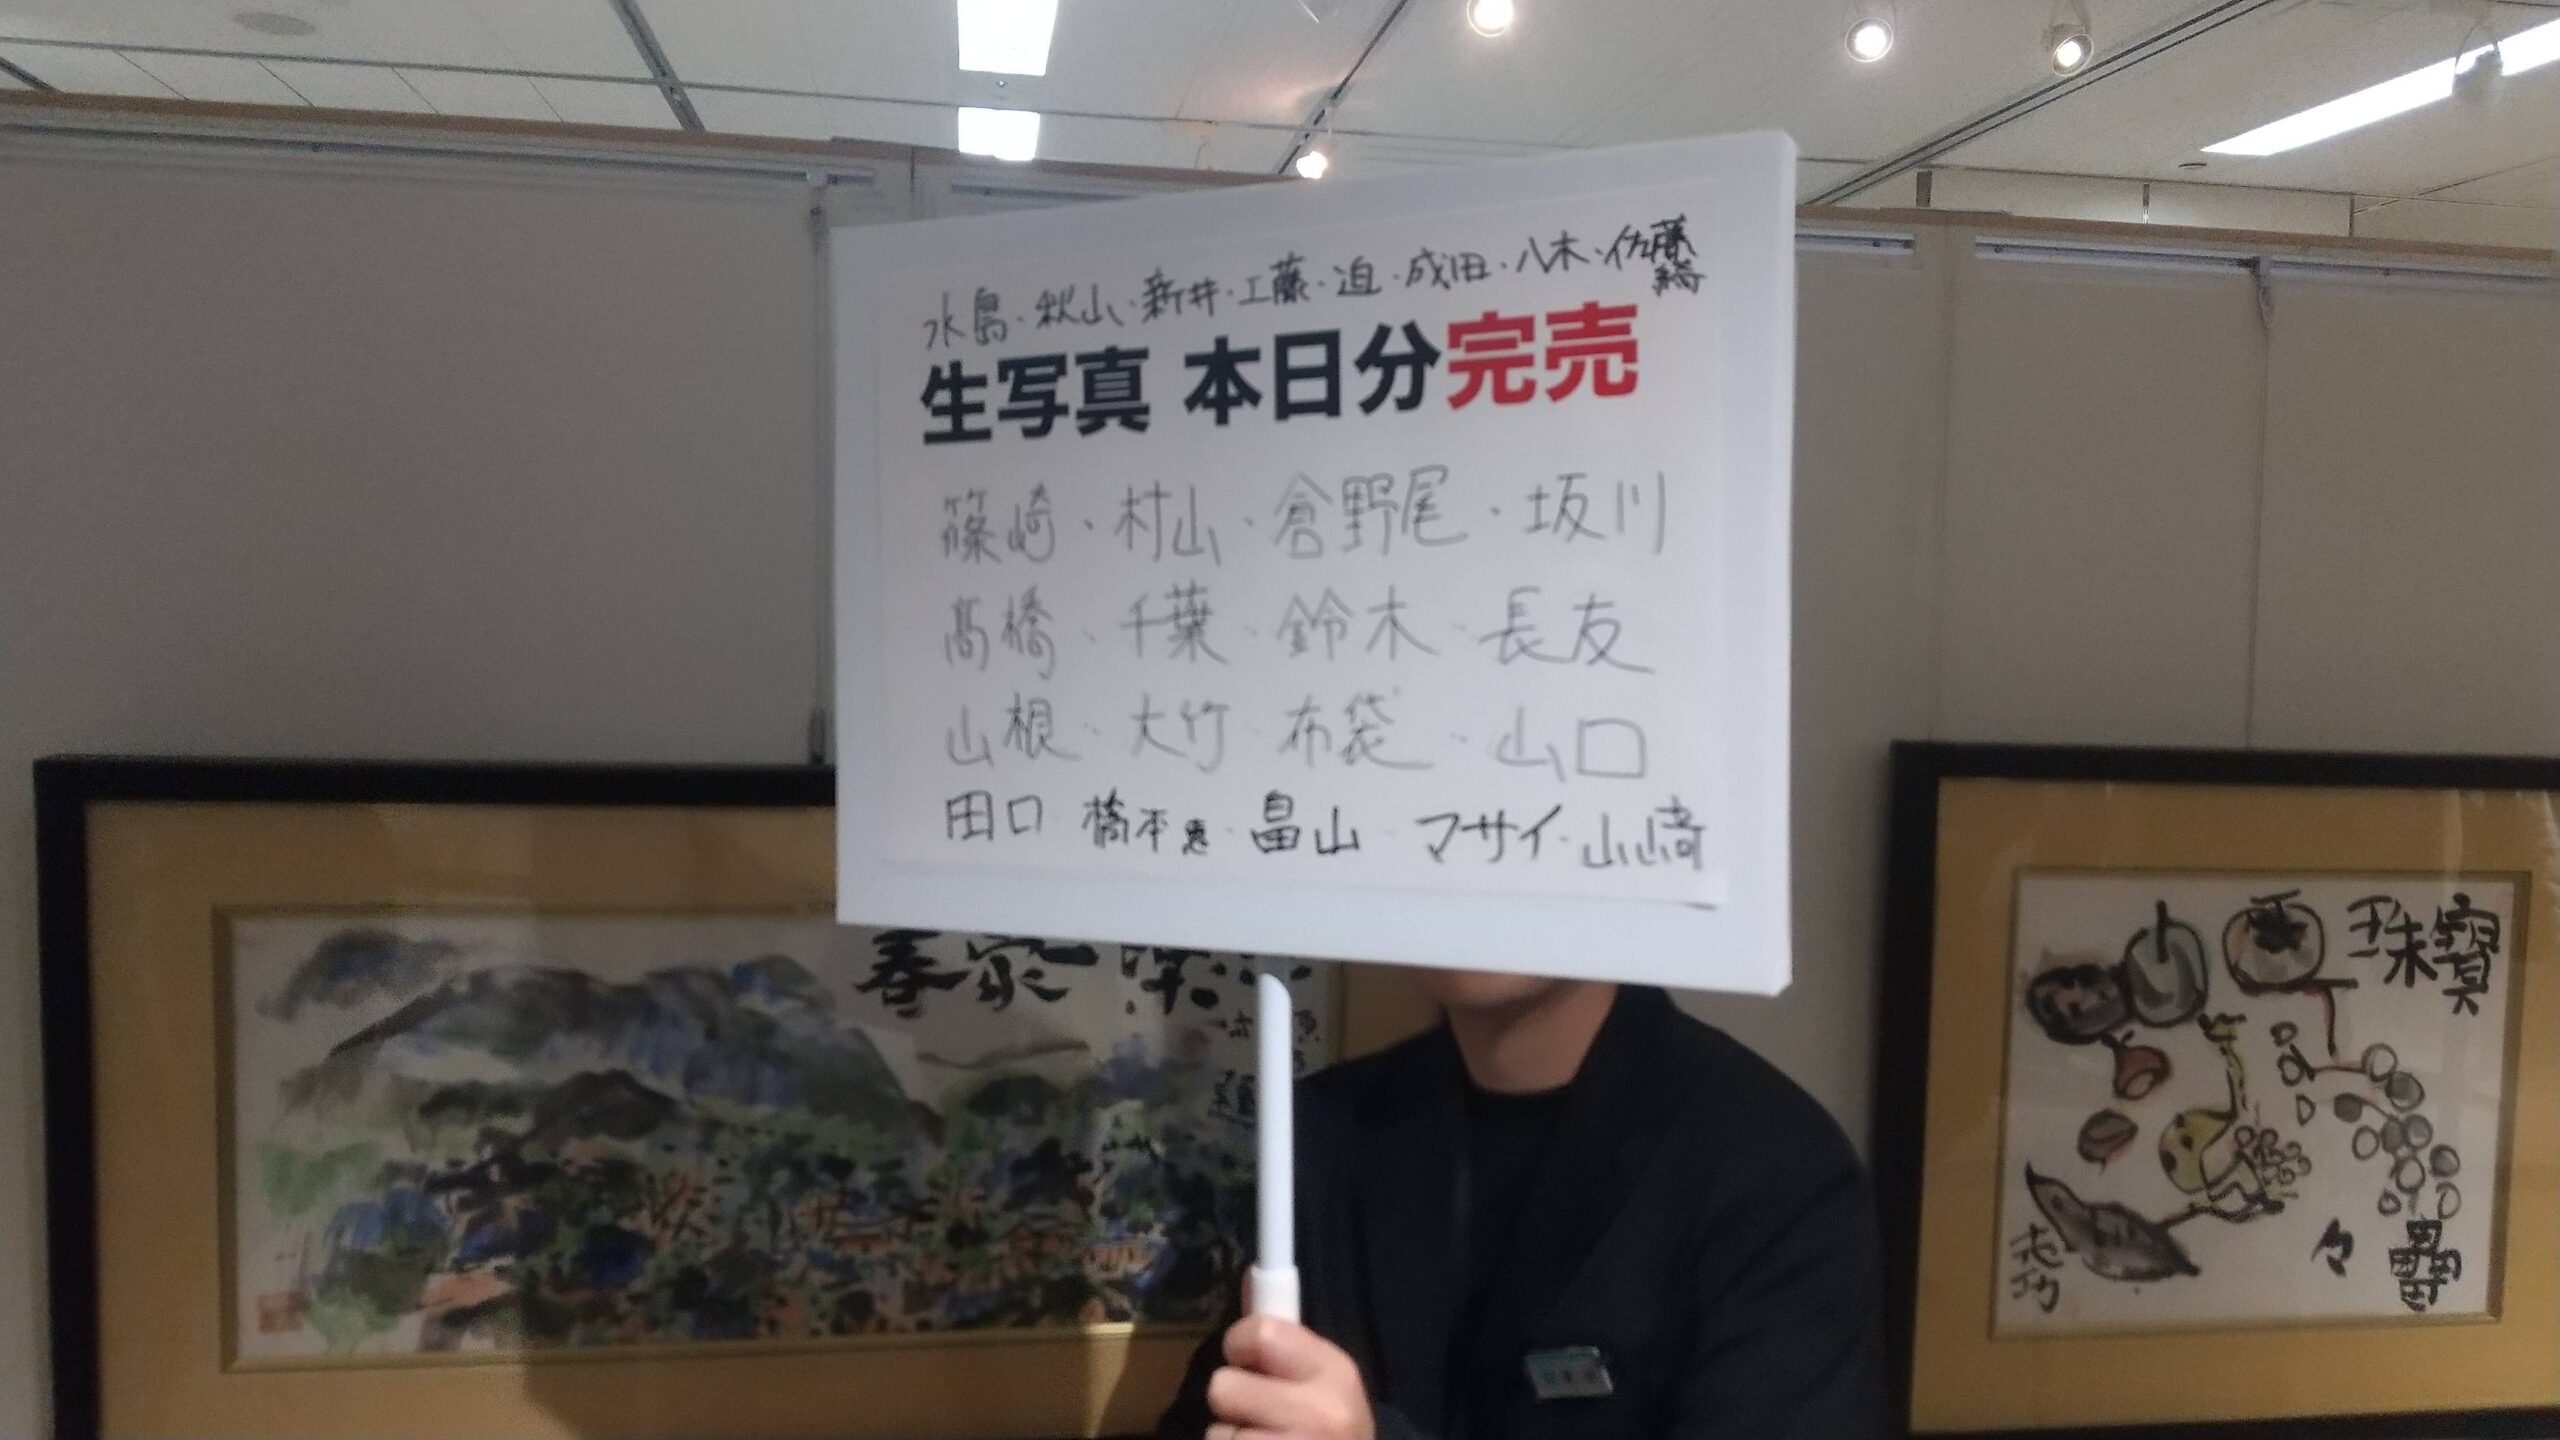 水島・秋山・新井・工藤・迫・成田・八木・佐藤綺
生写真 本日分完売
篠崎・村山・倉野尾・坂川
髙橋・千葉・鈴木・長友
山根・大竹・布袋・山口
田口 橋本恵・畠山・マサイ・山﨑
珠寶